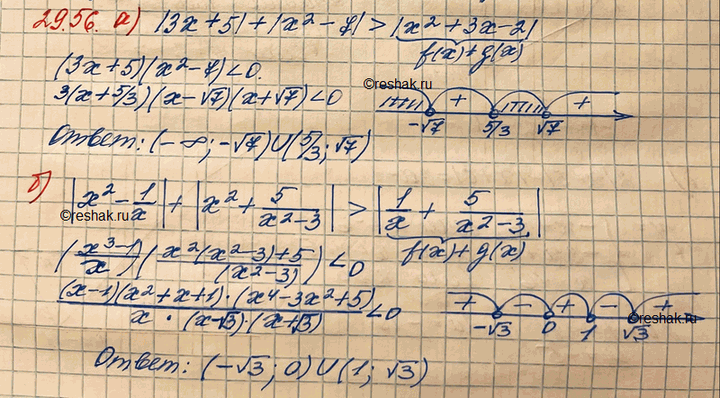 29.56. а) |3x+5|+|x²-7|>|x²+3x-2|
f(x)+g(x)
(3x+5)(x²-7)<0.
3(x+5/3)(x-√7)(x+√7)<0
©reshak.ru
+ +
-√7 5/3 √7
Ответ: (-∞;-√7)∪(5/3;√7)
б) |x²-1/x|+|x²+5/(x²-3)|>|1/x+5/(x²-3)|
©reshak.ru
f(x)+g(x)
((x³-1)/x)((x²(x²-3)+5)/(x²-3))<0
(x-1)(x²+x+1)·(x⁴-3x²+5)/(x·(x-√3)·(x+√3))<0
+ - + - +
-√3 0 1 √3
©reshak.ru
Ответ: (-√3;0)∪(1;√3)